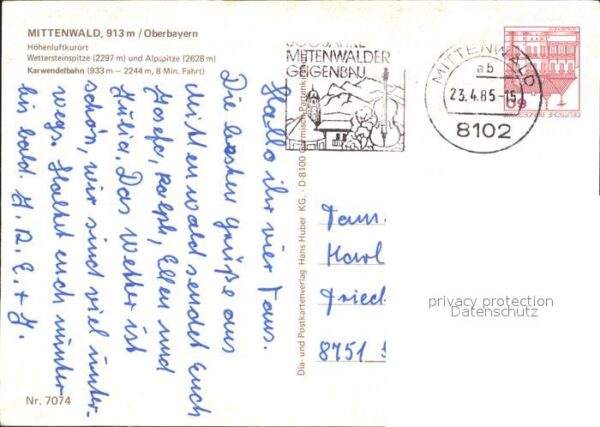 MITTENWALD, 913 m / Oberbayern
Höhenluftkurort
Wettersteinspitze (2297 m) und Alpspitze (2628 m)
Karwendelbahn (933 m – 2244 m, 8 Min. Fahrt)
300 JAHRE
MITTENWALDER
GEIGENBAU
MITTENWALD
ab
23.4.85-15
8102
60
DEUTSCHE BUNDESPOST
Hallo ihr vier
Die besten Grüße aus
Mittenwald sendet Euch
Josefa, Ralph, Ellen und
Julia. Das Wetter ist
schön, wir sind viel unter-
wegs. Haltet euch munter
bis bald. H. R. E. + J.
Dia- und Postkartenverlag Hans Huber KG. · D-8100 Garmisch-Partenk
Fam.
Karl
Fried
8751
privacy protection
Datenschutz
Nr. 7074